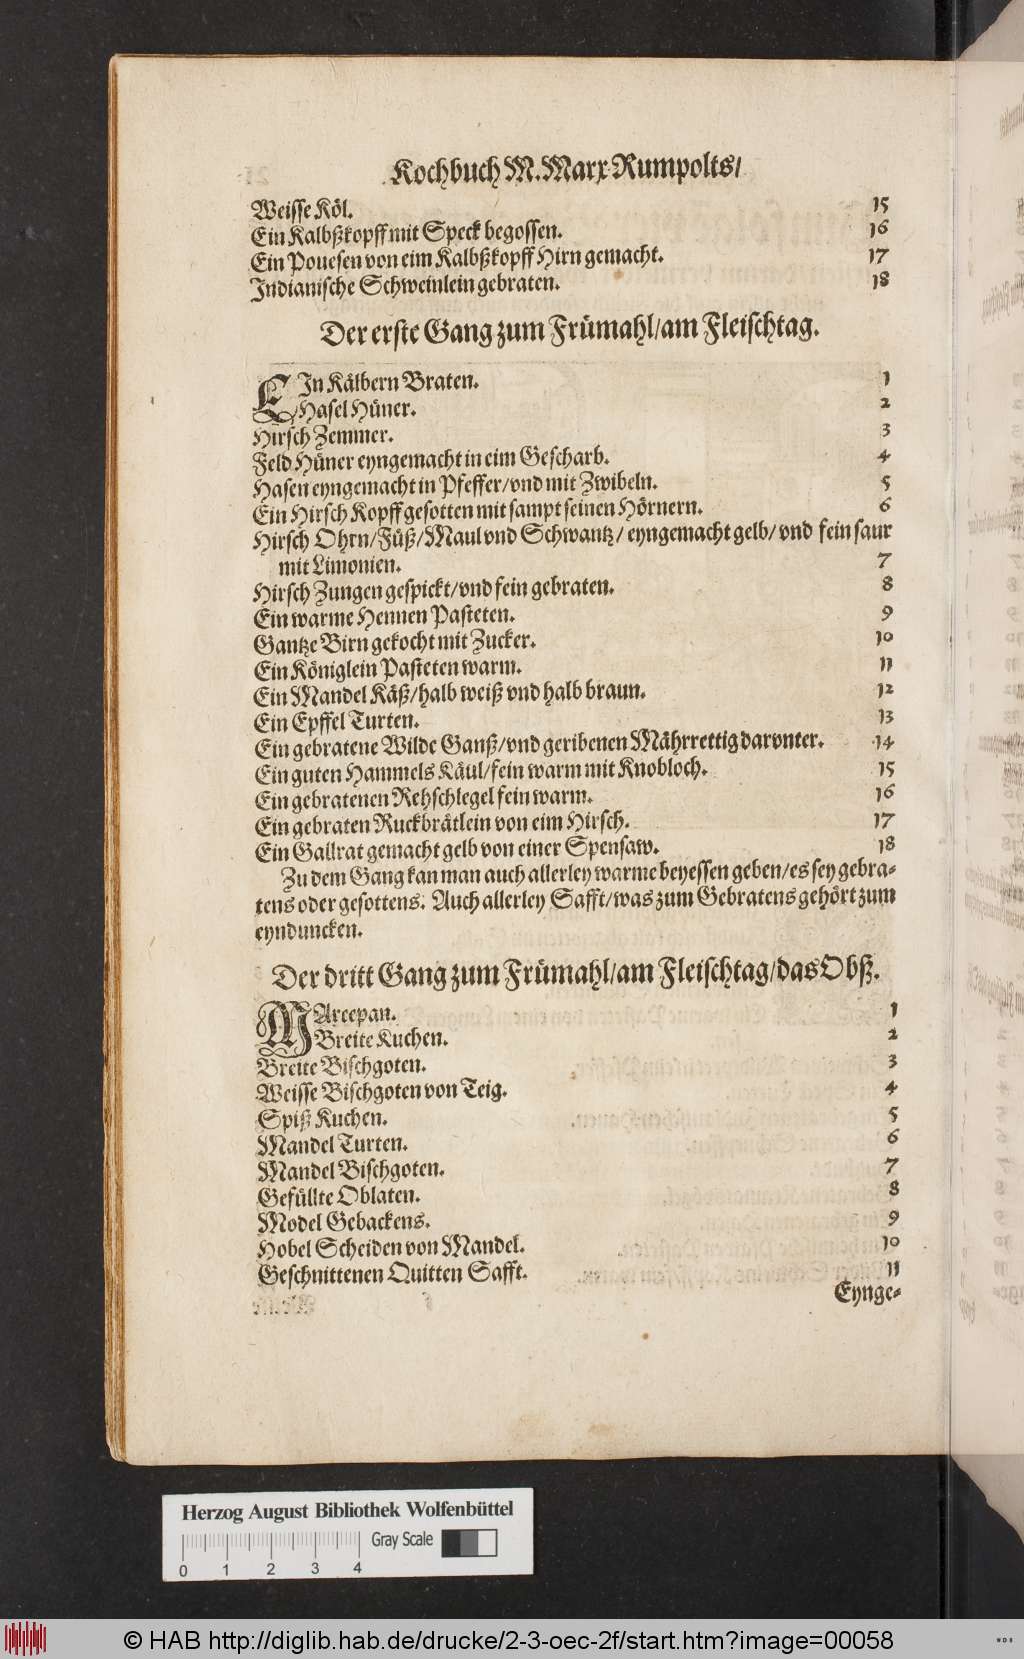 Kochbuch M. Marx Rumpolts/
Weisse Köl. 15
Ein Kalbßkopff mit Speck begossen. 16
Ein Pouesen von eim Kalbßkopff Hirn gemacht. 17
Indianische Schweinlein gebraten. 18
Der erste Gang zum Frümahl/am Fleischtag.
EIn Kälbern Braten. 1
Hasel Hüner. 2
Hirsch Zemmer. 3
Feld Hüner eyngemacht in eim Gescharb. 4
Hasen eyngemacht in Pfeffer/vnd mit Zwibeln. 5
Ein Hirsch Kopff gesotten mit sampt seinen Hörnern. 6
Hirsch Ohrn/Füß/Maul vnd Schwantz/ eyngemacht gelb/ vnd fein saur
mit Limonien. 7
Hirsch Zungen gespickt/vnd fein gebraten. 8
Ein warme Hennen Pasteten. 9
Gantze Birn gekocht mit Zucker. 10
Ein Königlein Pasteten warm. 11
Ein Mandel Käß/halb weiß vnd halb braun. 12
Ein Epffel Turten. 13
Ein gebratene Wilde Ganß/vnd geribenen Mährrettig darvnter. 14
Ein guten Hammels Käul/fein warm mit Knobloch. 15
Ein gebratenen Rehschlegel fein warm. 16
Ein gebraten Ruckbrätlein von eim Hirsch. 17
Ein Gallrat gemacht gelb von einer Spensaw. 18
Zu dem Gang kan man auch allerley warme beyessen geben/es sey gebra-
tens oder gesottens. Auch allerley Safft/was zum Gebratens gehört zum
eynduncken.
Der dritt Gang zum Frümahl/am Fleischtag/das Obß.
MArcepan. 1
Breite Kuchen. 2
Breite Bischgoten. 3
Weisse Bischgoten von Teig. 4
Spiß Kuchen. 5
Mandel Turten. 6
Mandel Bischgoten. 7
Gefüllte Oblaten. 8
Model Gebackens. 9
Hobel Scheiden von Mandel. 10
Geschnittenen Quitten Safft. 11
Eynge-
Herzog August Bibliothek Wolfenbüttel
Gray Scale
0 1 2 3 4
© HAB http://diglib.hab.de/drucke/2-3-oec-2f/start.htm?image=00058